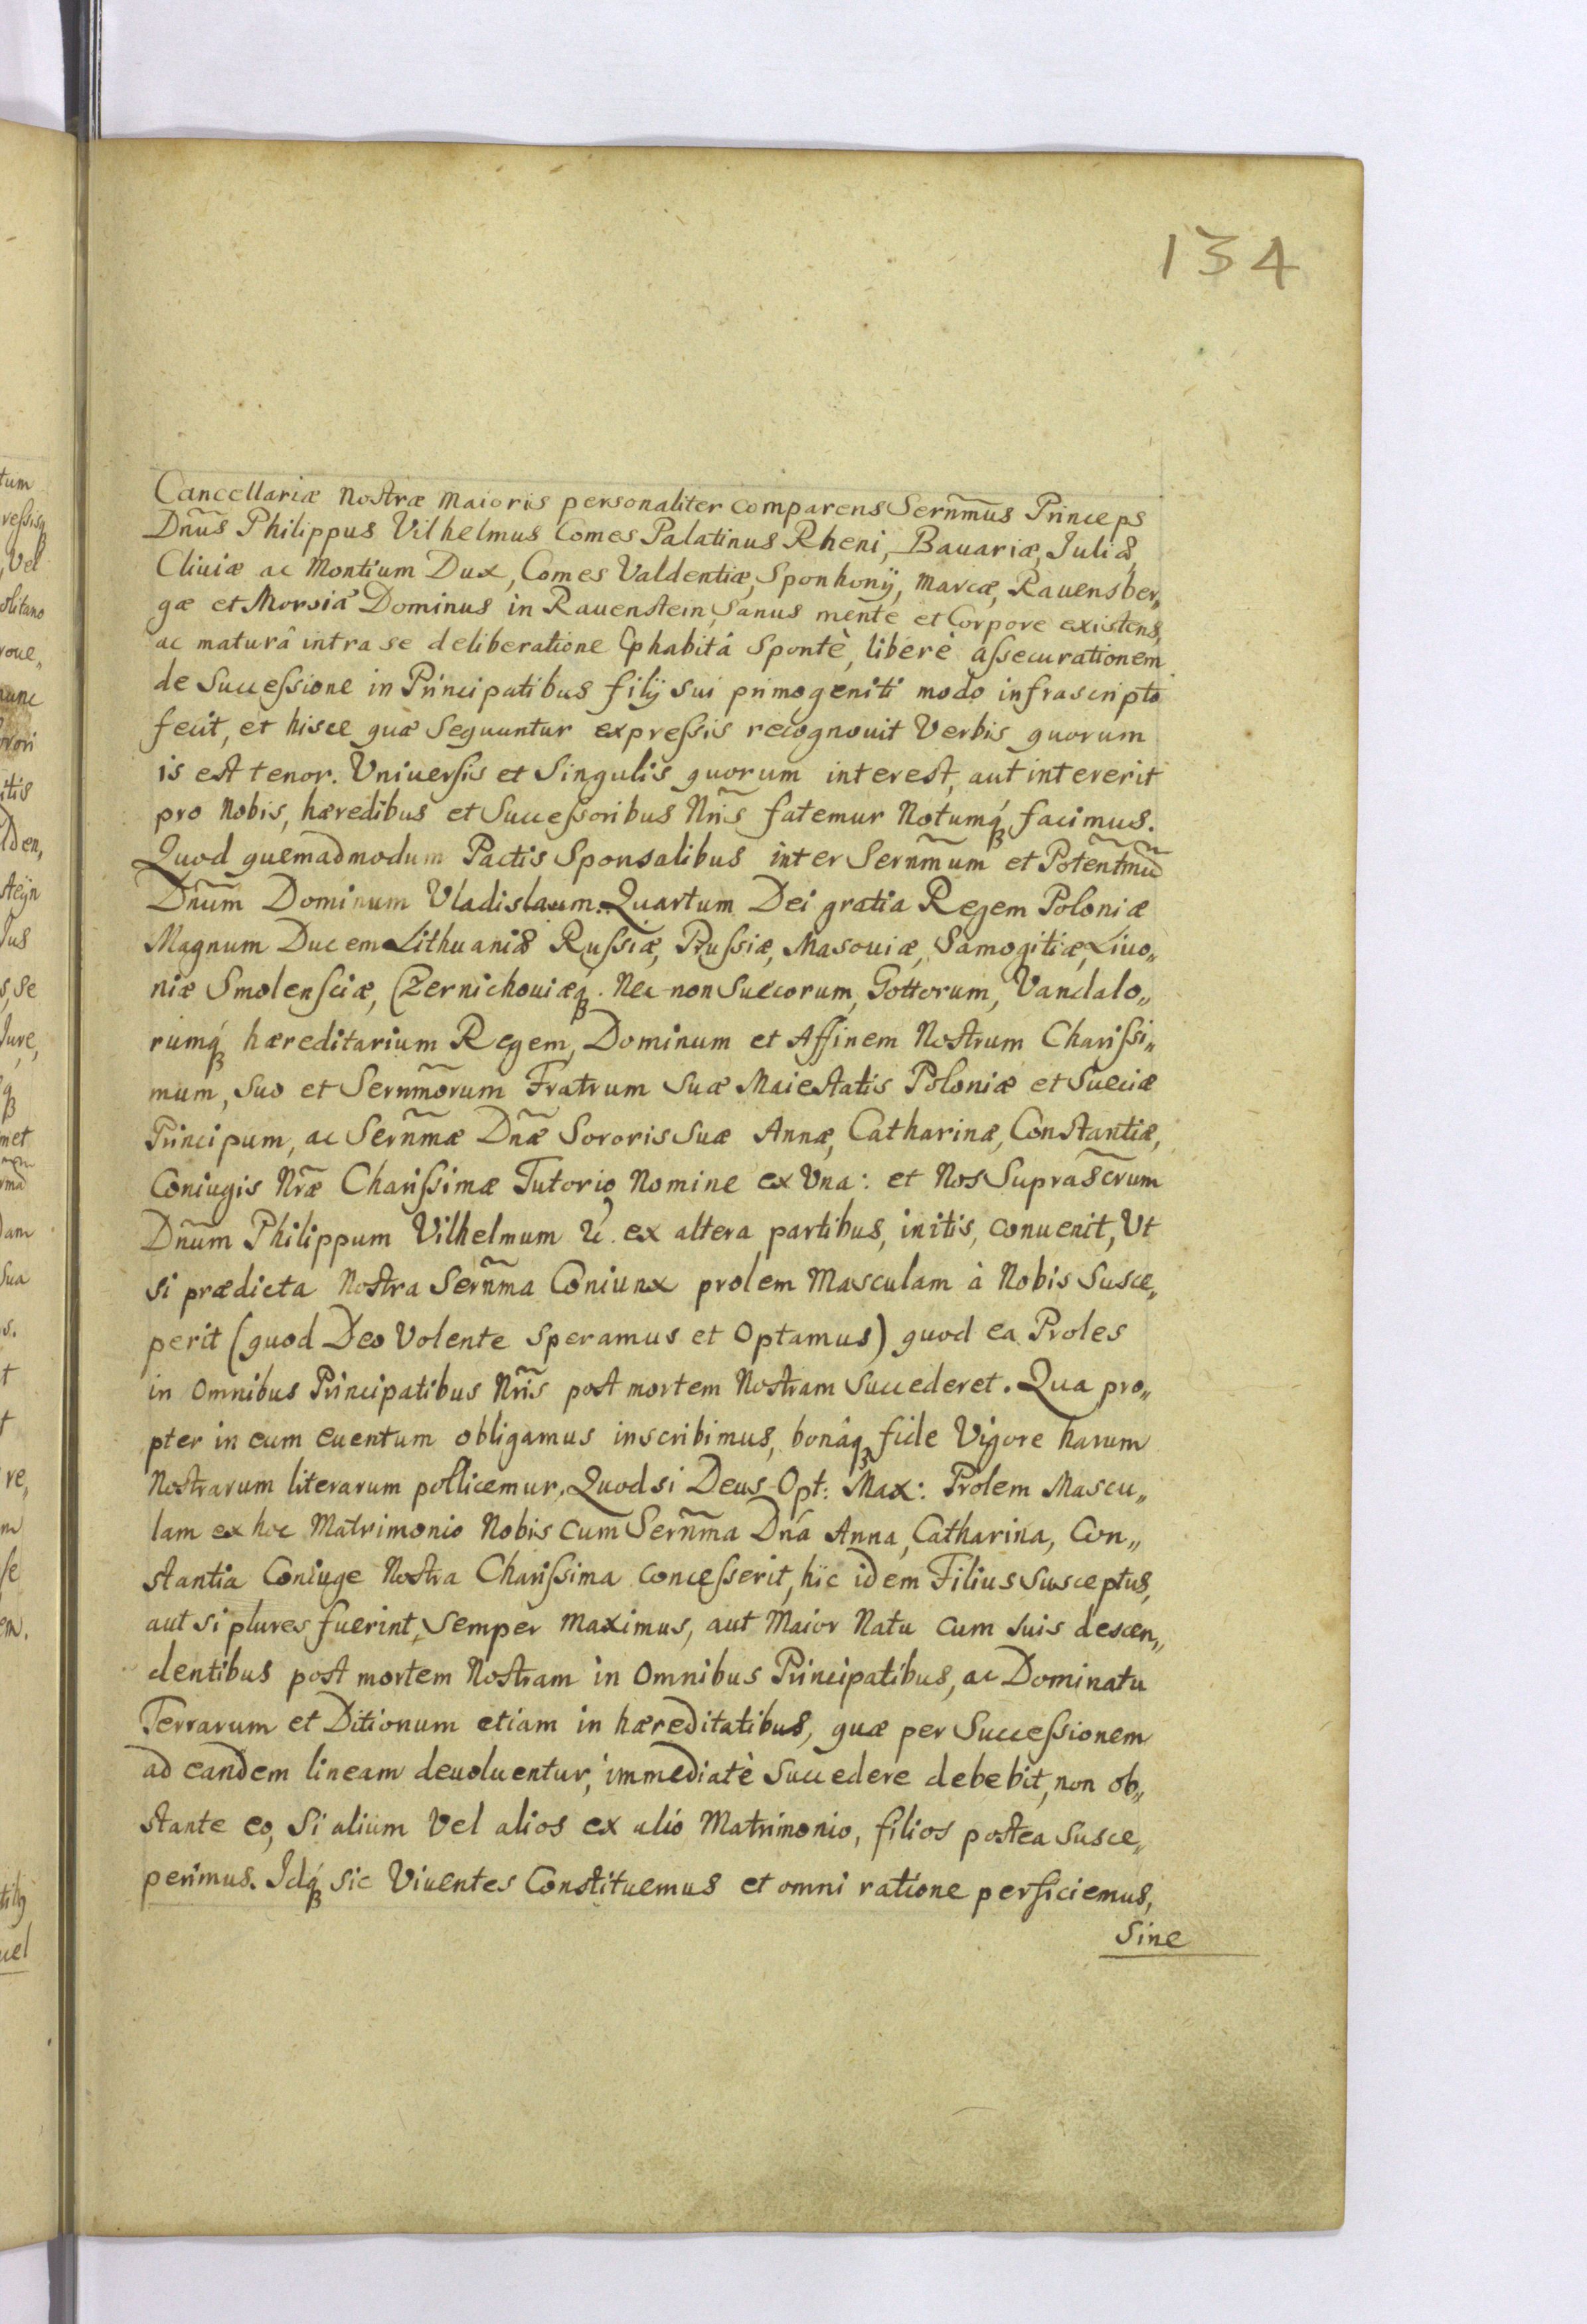 134
Cancellariæ Nostræ Maioris personaliter comparens Serñmus Princeps
Dñus Philippus Vilhelmus Comes Palatinus Rheni, Bauariæ, Juliæ,
Cliuiæ ac Montium Dux, Comes Valdentiæ, Sponhonÿ, Marcæ, Rauensber„
gæ et Morsiæ Dominus in Rauenstein, Sanus mente et Corpore existens,
ac maturâ intra se deliberatione habitâ Spontè, liberè aſsecurationem
de Succeſsione in Principatibus filÿ sui primogeniti modo infrascripto
fecit, et hisce quæ Sequuntur expreſsis recognouit Verbis quorum
is est tenor. Vniuerſis et Singulis quorum interest, aut intererit
pro Nobis, hæredibus et Succeſsoribus Nr̃is fatemur Notumq́ꝫ facimus.
Quod quemadmodum Pactis Sponsalibus inter Serñmum et Poteñtmũ
Dñum Dominum Vladislaum Quartum Dei gratia Regem Poloniæ
Magnum Ducem Lithuaniæ Ruſsiæ, Pruſsiæ, Masouiæ, Samogitiæ, Liuo„
niæ Smolenſciæ, Czernichouiæq́ꝫ. Nec non Suecorum, Gottorum, Vandalo„
rumq́ꝫ hæreditarium Regem, Dominum et Affinem Nostrum Chariſsi„
mum, Suo et Serñmorum Fratrum Suæ Maiestatis Poloniæ et Sueciæ
Principum, ac Serñmæ Dñæ Sororis Suæ Annæ, Catharinæ, Constantiæ,
Coniugis Nr̃æ Chariſsimæ Tutorio Nomine ex Vna: et Nos Supras̃crum
Dñum Philippum Vilhelmum &c. ex altera partibus, initis, conuenit, Vt
si prædicta Nostra Serñma Coniunx prolem Masculam à Nobis Susce„
perit (quod Deo Volente Speramus et Optamus) quod ea Proles
in Omnibus Principatibus Nr̃is post mortem Nostram Succederet. Qua pro„
pter in eum euentum obligamus inscribimus, bonâqꝫ fide Vigore harum
Nostrarum literarum pollicemur, Quod si Deus Opt: Max: Prolem Mascu„
lam ex hoc Matrimonio Nobis cum Serñma Dñá Anna, Catharina, Con„
stantia Coniuge Nostra Chariſsima conceſserit, hic idem Filius Susceptus,
aut si plures fuerint, Semper Maximus, aut Maior Natu cum suis descen„
dentibus post mortem Nostram in Omnibus Principatibus, ac Dominatu
Terrarum et Ditionum etiam in hæreditatibus, quæ per Succeſsionem
ad eandem lineam deuoluentur, immediatè Succedere debebit, non ob„
stante eo, Si alium Vel alios ex alio Matrimonio, filios postea Susce„
perimus. Idq́ꝫ Sic Viuentes Constituemus et omni ratione perficiemus,
Sine